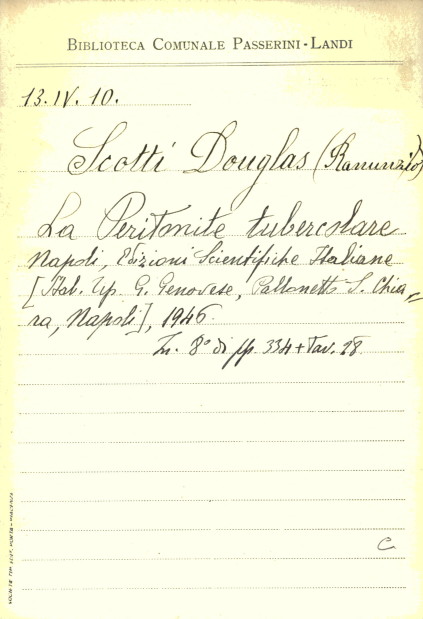 BIBLIOTECA COMUNALE PASSERINI-LANDI
13.IV.10.
Scotti Douglas (Ranunzio)
La Peritonite tubercolare
Napoli, Edizioni Scientifiche Italiane
[Stab. Tip. G. Genovese, Pallonetto S. Chia=
ra, Napoli], 1946.
In. 8° di pp. 334 + Tav. 28
C